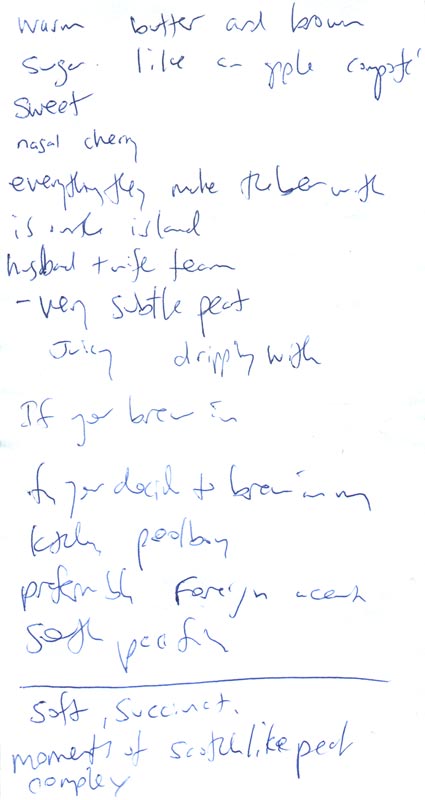 warm butter and brown
sugar. like an apple compote
sweet
nasal cherry
everything they make the beer with
is on the island
husband + wife team
- very subtle peat
Juicy dripping with
If you brew in
If you decide to brew in my
kitchen
preferably Foreign accent
soft
soft, succinct.
moments of scotchlike peat
complex